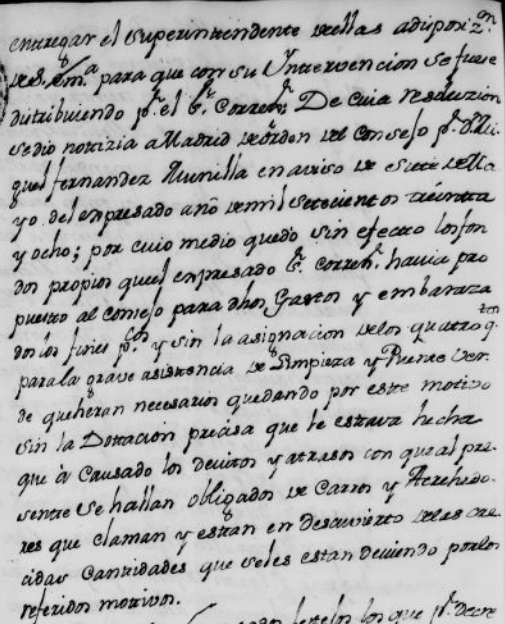 entregar el superintendente dellas adisposiz.on
de S. Em.a para que con su Yntervencion se fuese
distribuiendo p.r el S.r Correx.r De cuia resoluzion
se dio notizia a Madrid de orden del Consejo p.r D.n Mi
guel fernandez Munilla en aviso de siete de Ma
yo del expresado año de mil setecientos treinta
y ocho; por cuio medio quedo sin efecto los fon
dos propios que el expresado S.r Correx.r havia pro
puesto al consejo para dhos Gastos y embaraza
dos los fines p.cos y sin la asignacion de los quatro q.tos
para la grave asistencia de Limpieza y Puente Ver
de que heran necesarios quedando por este motivo
sin la Dottacion precisa que le estava hecha
que à causado los devitos y atrasos con que al pre
sente se hallan obligados de Carros y Acrehedo
res que claman y estan en descuvierto de las cre
cidas Cantidades que seles estan deviendo por los
referidos motivos.
los que p.r Decre